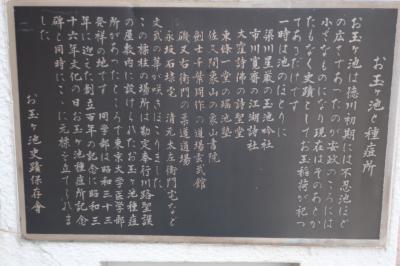 お玉ヶ池と種痘所
お玉ヶ池は徳川初期には不忍池ほど
の広さであったのが安政のころには
小さなものになり現在はそのあとか
たもなく史蹟としてお玉稲荷が祀っ
てあるだけです
一時は池のほとりに
梁川星巌の玉池吟社
市川寛斎の江湖詩社
大窪詩佛の詩聖堂
東條一堂の瑶池塾
佐久間象山の象山書院
剣士千葉周作の道場玄武館
磯又右衛門の柔道道場
永坂石埭宅 清元太左衛門宅など
文武の華が咲きほこりました
この標柱の場所は勘定奉行川路聖謨
の屋敷内に設けられたお玉ヶ池種痘
所があったところで東京大学医学部
発祥の地です 同学部は昭和三十三
年に迎えた創立百年の記念に昭和三
十六年文化の日お玉ヶ池種痘所記念
碑と同時にこゝに元標を立てられま
した
お玉ヶ池史蹟保存會